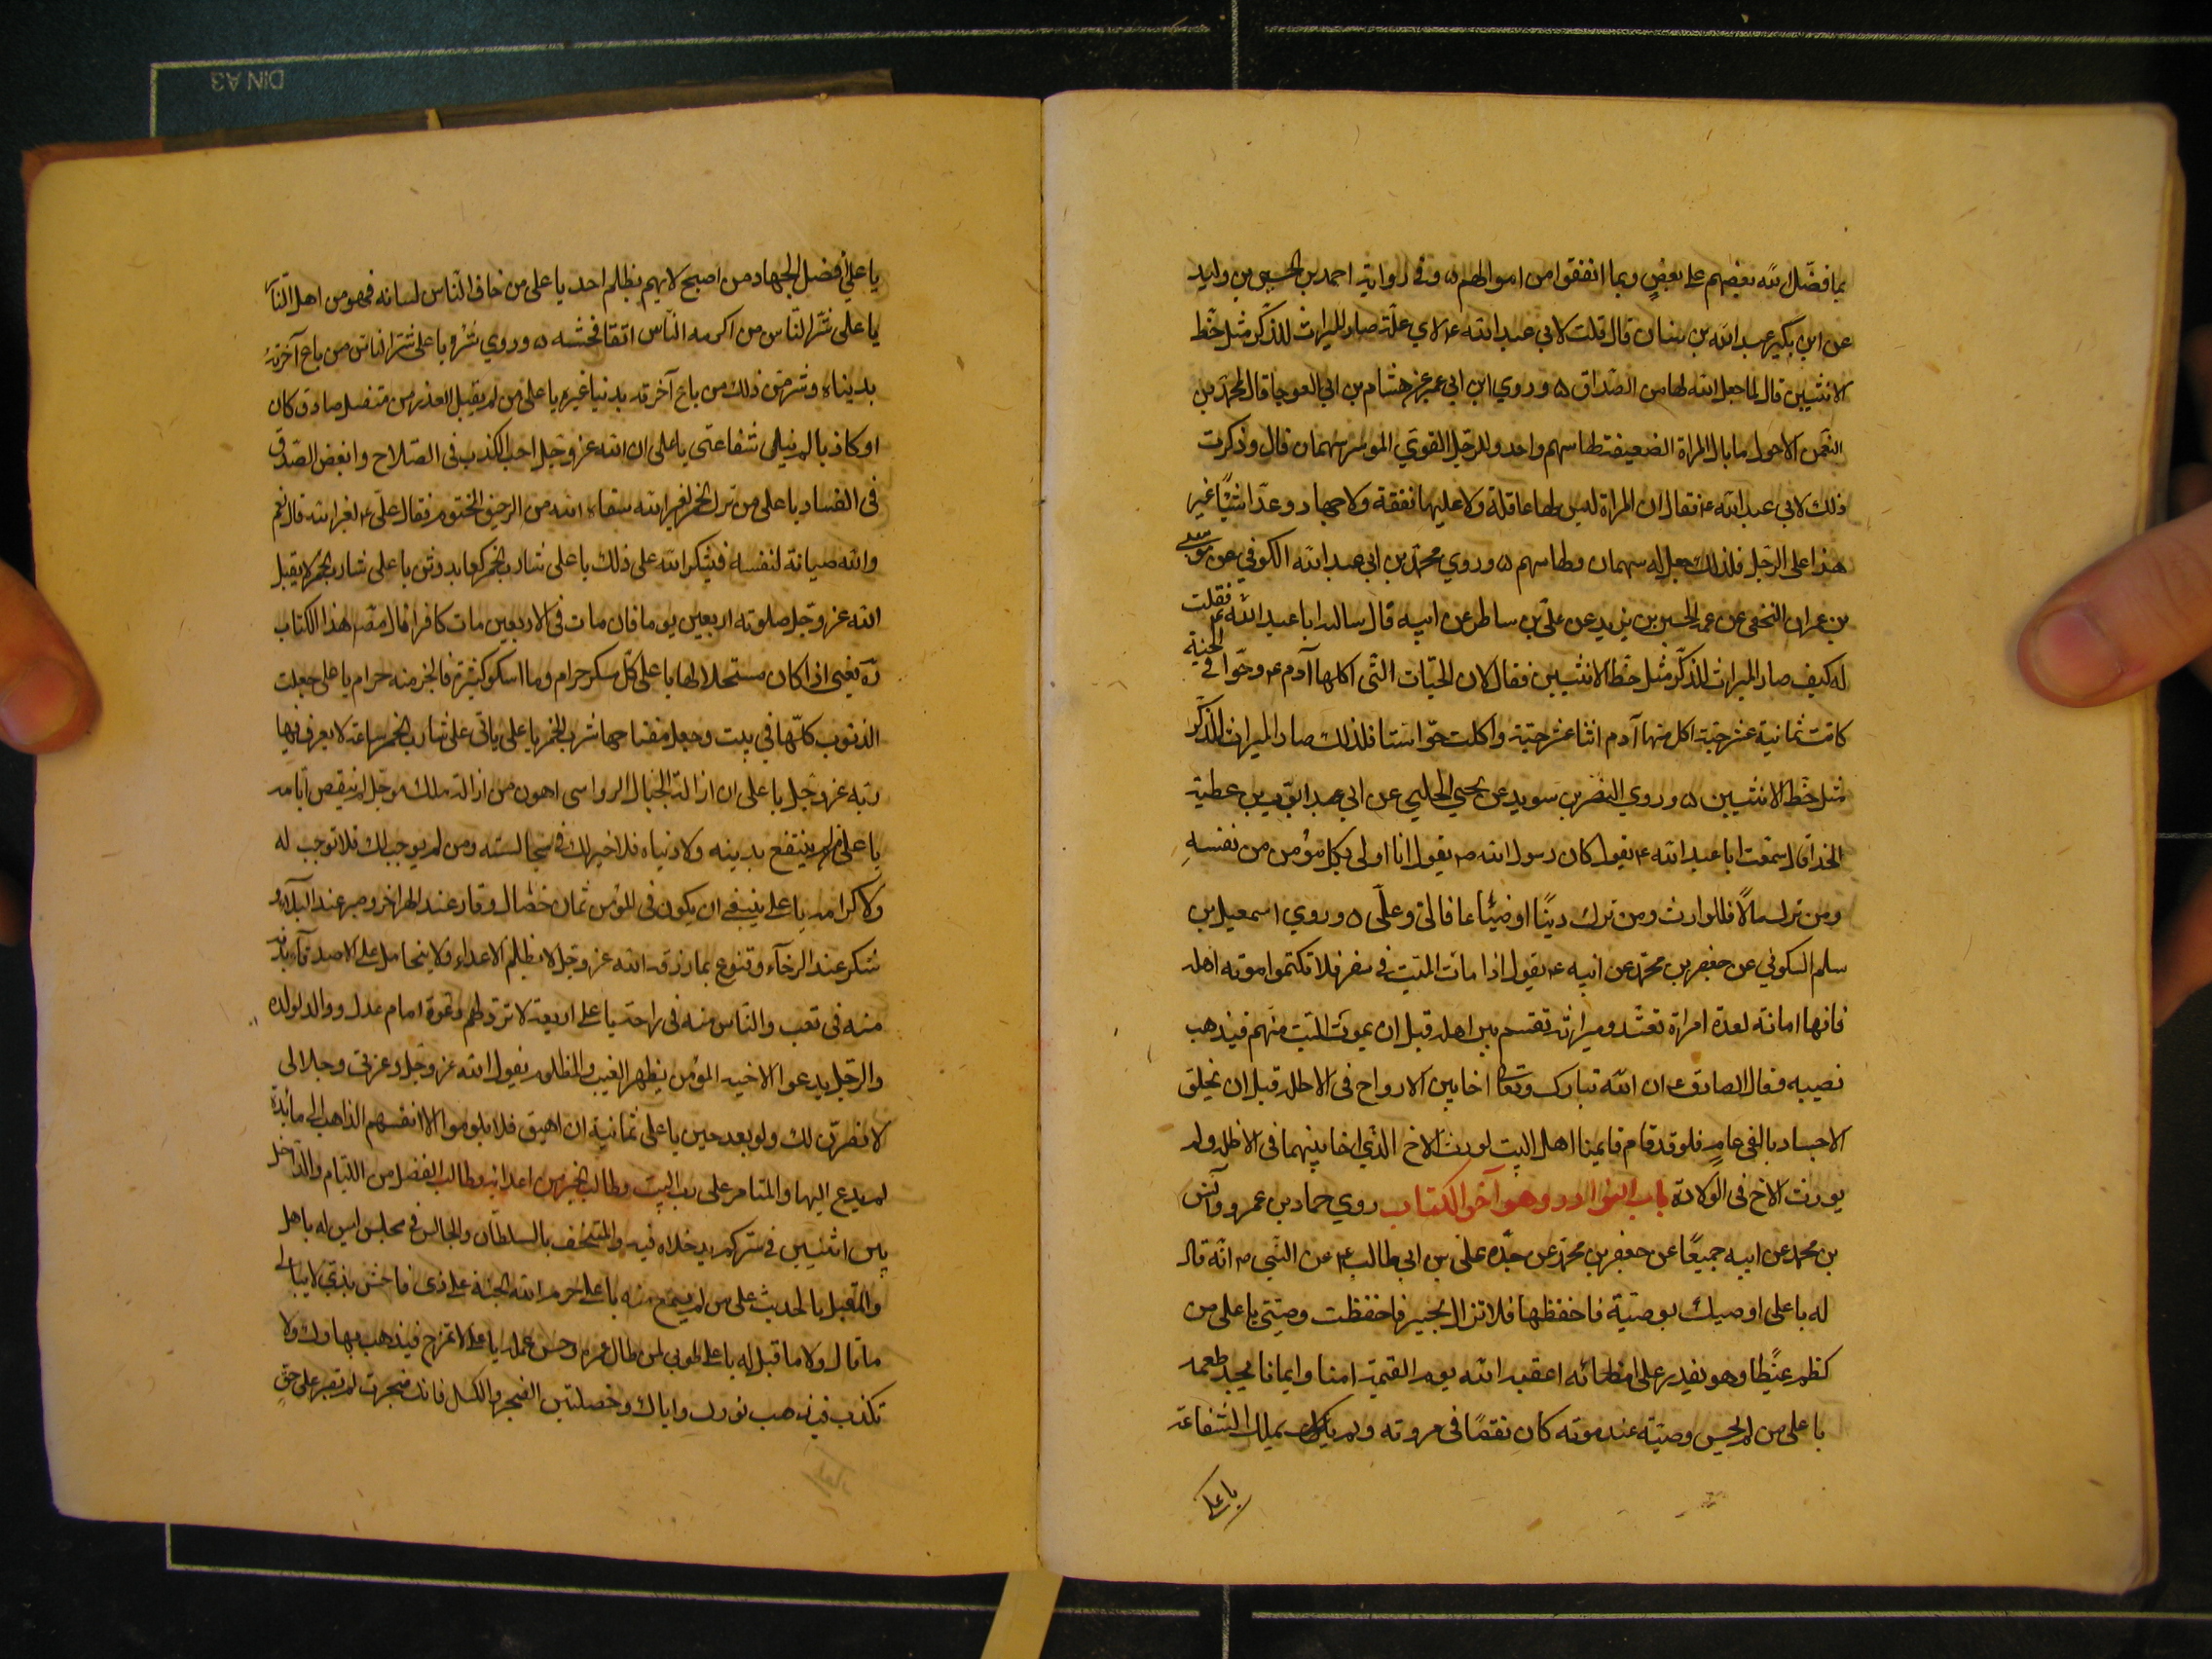 بما فضّل الله بعضهم على بعضٍ وبما انفقوا من اموالهم ٥ وفي رواية احمد بن الحسين بن وليد
عن ابن بكير عبد الله بن سنان قال قلت لابي عبد الله ع لاي علّة صار الميراث للذّكر مثل حظّ
الانثيين قال لما جعل الله لها من الصّداق ٥ وروي ابن ابي عمير عن هشام بن ابي العوجا قال لمحمّد بن
النعمن الاحول ما بال المراة الضعيفة لها سهم واحد وللرّجل القويّ الموسر سهمان قال وذكرت
ذلك لابي عبد الله ع فقال ان المراة ليس لها عاقلة ولا عليها نفقة ولا جهاد وعدّ اشيئًا غير
هذا على الرّجل فلذلك جعل له سهمان ولها سهم ٥ وروي محمّد بن ابي عبد الله الكوفي عن موسى
بن عمران النخعي عن عمه الحسين بن يزيد عن عليّ بن سالم عن ابيه قال سالت ابا عبد الله ع فقلت
له كيف صار الميراث للذّكر مثل حظّ الانثيين فقال لان الحبّات الّتى اكلها آدم ع وحوّا في الجنّية
كانت ثمانية عشر حبّة اكل منها آدم اثنا عشر حبّة واكلت حوّا ستا فلذلك صار الميراث للذّكر
مثل حظّ الانثيين ٥ وروي النضر بن سويد عن يحيي الحلبي عن ابي ايوب بن عطية
الحذاق لسمعت ابا عبد الله ع يقول كان رسول الله ص يقول انا اولى بكل مؤمن من نفسهِ
ومن ترك مالًا فللوارث ومن ترك دينًا او ضيئا عا فالىّ وعلىّ ٥ وروي اسمعيل بن
سلم السكوني عن جعفر بن محمّد عن ابيه ع يقول اذا مات الميّت في سفر فلا تكتموا موته اهله
فانها امانة لعدة امراة تعتّد وميراثه تقسم بين اهله قبل ان يموت الميّت منهم فيذهب
نصيبه فقال الصادق ع ان الله تبارك وتعالى اخا بين الارواح فى الاظلة قبل ان يخلق
الاجساد بالفى عامٍ فلو قد قام قايمنا اهل البيت لورث الاخ الّذي اخا بينهما فى الاظلة ولم
يورث الاخ فى الولادة باب النوادر وهو آخر الكتاب روي حماد بن عمرو وآنس
بن محمد عن ابيه جميعًا عن جعفر بن محمّد عن جدّه على بن ابى طالب ع عن النّبي ص انّه قال
له يا على اوصيك بوصيّة فاحفظها فلا تزال بخير فاحفظت وصيّتي يا على من
كظم غيظًا وهو يقدر على امضائه اعقبه الله يوم القيمة امنا وايمانا يجد طعمه
يا على من لم يحسن وصيّته عند موته كان نقصًا فى مروته ولم يملك الشفاعة
يا على
يا علي أفضل الجهاد من اصبح لا يهم بظلم احد يا على من خاف النّاس لسانه فهو من اهل النّار
يا على شرّ النّاس من اكرمه النّاس اتّقا فحشه ٥ وروي شرّه يا على شرّ الناس من باع آخرته
بدنياه وشر من ذلك من باع آخرته بدنيا غيره يا على من لم يقبل العذر من متنصل صادق كان
او كاذبا لم ينلى شفاعتى يا على ان الله عزوجل احب الكذب فى الصّلاح وابغض الصّدق
فى الفساد يا على من ترك الخمر لغير الله سقاه الله من الرحيق المختوم فقال على ع لغير الله قال نعم
والله صيانة لنفسه فيشكر الله على ذلك يا على شارب الخمر كعابد وثن يا على شارب الخمر لا يقبل
الله عزوجل صلوته اربعين يوما فان مات فى الاربعين مات كافرا قال مصنف هذا الكتاب
ره يعني اذا كان مستحلا لها يا على كلّ مسكر حرام وما اسكر كثيره فالجرعة منه حرام يا على جعلت
الذنوب كلّها في بيت وجعل مفتاحها شرب الخمر يا على ياتى على شارب الخمر ساعة لا يعرف فيها
ربه عزوجل يا على ان ازالة الجبال الرواسى اهون من ازالة ملك موجل لم ينقص ايّامه
يا على من لم ينتفع بدينه ولا دنياه فلا خير لك في مجالسته ومن لم يوجب لك فلا توجب له
ولا كرامة يا على ينبغي ان يكون فى المؤمن ثمان خصال وقار عند الهزاهز وصبر عند البلآء و
شكر عند الرخآء وقنوع بما رزقه الله عزوجل لا يظلم الاعداء ولا يتحامل على الاصدقآء بدنه
منه فى تعب والنّاس منه فى راحة يا على اربعة لا تردّ لهم دعوة امام عدل ووالد لولده
والرّجل يدعوا لاخيه المؤمن بظهر الغيب والمظلوم يقول الله عزوجل وعزتي وجلالى
لانصرنّ لك ولو بعد حين يا على ثمانية ان اهين فلا يلوموا الا انفسهم الذاهب الى مائدة
لم يدع اليها والمتامر على رب البيت وطالب الخير من اعدائه وطالب الفضل من اللئام والدّاخل
بين اثنين في سرّ كم يدخلاه فيه والمستخف بالسلطان والجالس في مجلس ليس له باهل
والمقبل بالحديث على من لم يسمع منه يا على حرم الله الجنّة على ذى فاحش بذيّ لا يبالى
ما قال ولا ما قيل له يا على طوبى لمن طال عمره وحسن عمله يا على لا تمزح فيذهب بهاوك ولا
تكذب فيذهب نورك واياك وخصلتين الضجر والكسل فانك ضجرت لم تصبر على حقّ